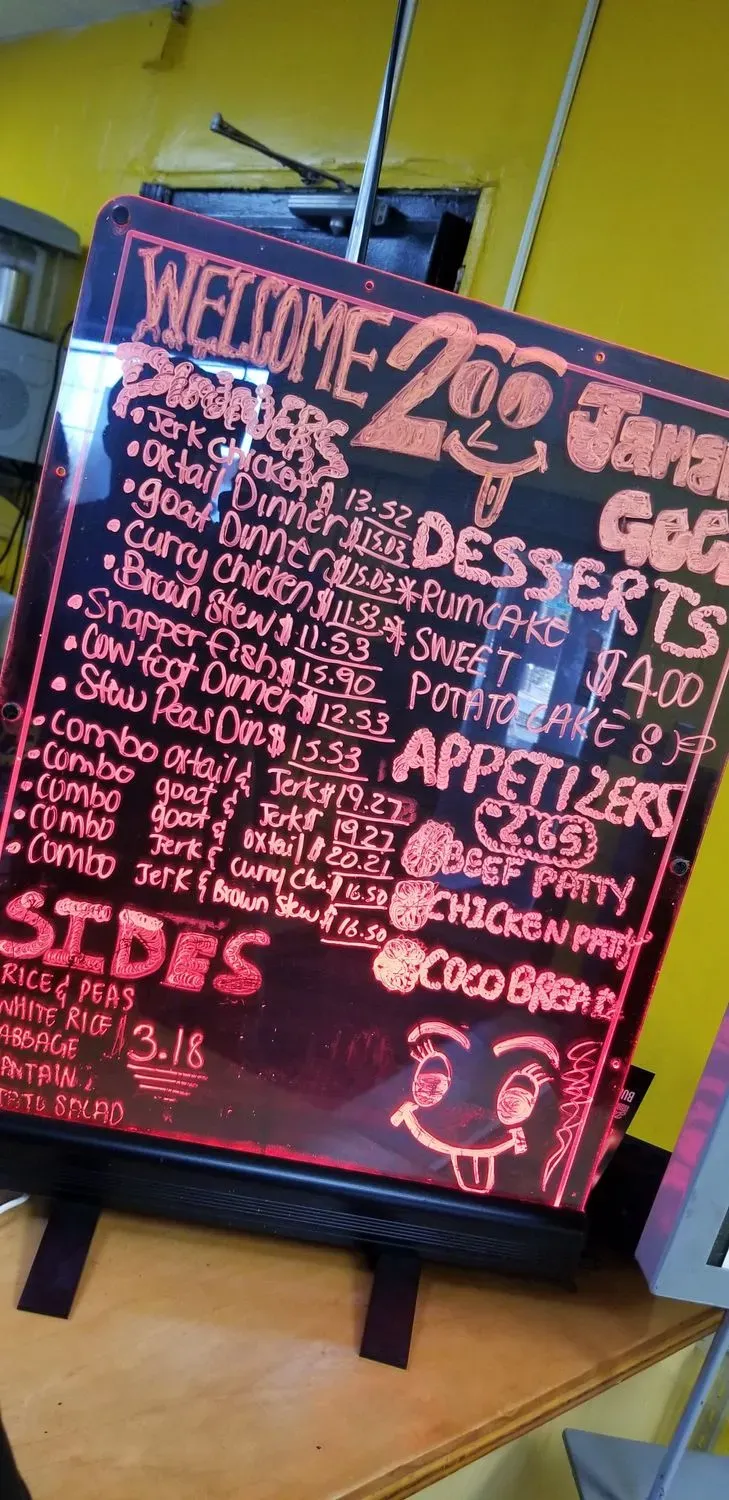 WELCOME 2
Jama
Gee
DINNERS
• Jerk chicken $ 13.52
• Oxtail Dinner $15.03
• goat Dinner $15.03
• curry chicken $ 11.53
• Brown Stew $ 11.53
• Snapper fish $ 15.90
• Cow foot Dinner $ 12.53
• Stew Peas Din $ 13.53
• Combo oxtail & Jerk $19.27
• Combo goat & Jerk $ 19.27
• Combo goat & oxtail $ 20.21
• Combo Jerk & curry Ch. $ 16.50
• Combo Jerk & Brown Stew $ 16.50
DESSERTS
* RUMCAKE
* SWEET $4.00
POTATO CAKE :)
APPETIZERS
2.65
BEEF PATTY
CHICKEN PATTY
COCO BREAD
SIDES
RICE & PEAS
WHITE RICE
ABBAGE 3.18
ANTAIN
TATO SALAD